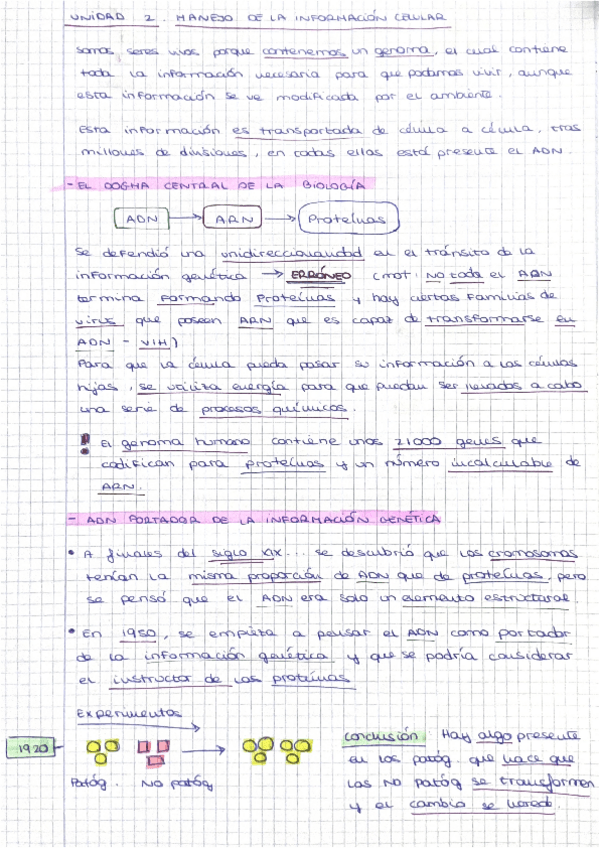 UNIDAD 2. MANEJO DE LA INFORMACIÓN CELULAR
Somos seres vivos porque contenemos un genoma, el cual contiene
toda la información necesaria para que podamos vivir, aunque
esta información se ve modificada por el ambiente.
Esta información es transportada de célula a célula, tras
millones de divisiones, en todas ellas está presente el ADN.
- EL DOGMA CENTRAL DE LA BIOLOGÍA
ADN → ARN → Proteínas
Se defendió una unidireccionalidad en el tránsito de la
información genética → ERRÓNEO (mot: No todo el ARN
termina formando proteínas y hay ciertas familias de
virus que poseen ARN que es capaz de transformarse en
ADN - VIH)
Para que la célula pueda pasar su información a las células
hijas, se utiliza energía para que puedan ser llevados a cabo
una serie de procesos químicos.
! El genoma humano contiene unos 21000 genes que
codifican para proteínas y un número incalculable de
ARN.
- ADN PORTADOR DE LA INFORMACIÓN GENÉTICA
• A finales del siglo XIX... se descubrió que los cromosomas
tenían la misma proporción de ADN que de proteínas, pero
se pensó que el ADN era solo un elemento estructural.
• En 1950, se empieza a pensar el ADN como portador
de la información genética y que se podría considerar
el instructor de las proteínas.
Experimentos
1920
Patóg. No patóg
Conclusión: Hay algo presente
en los patóg. que hace que
los no patóg se transformen
y el cambio se hered.